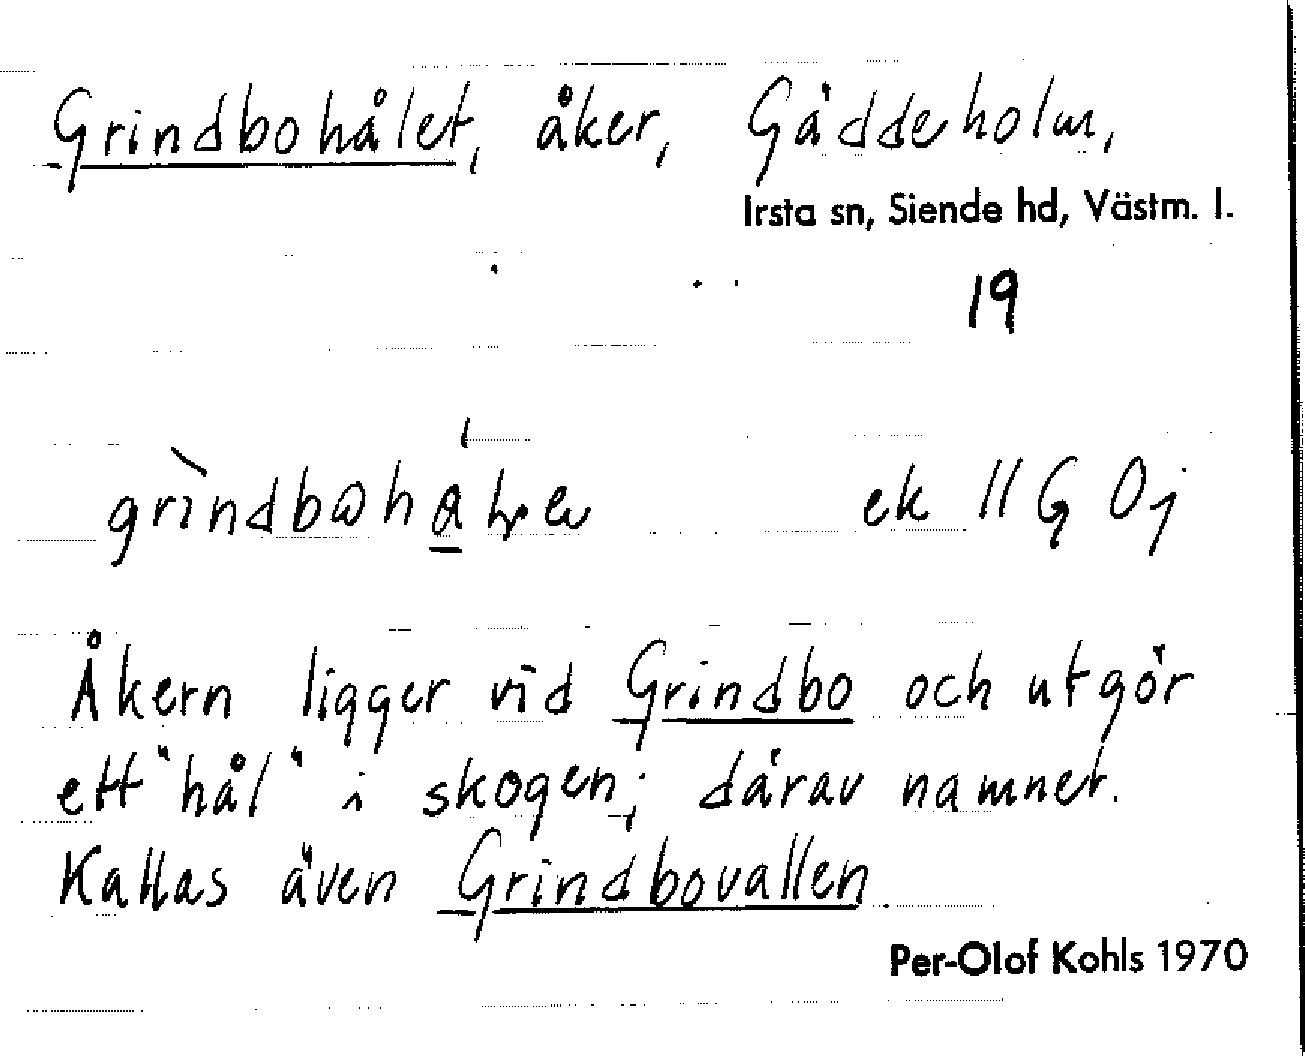 Grindbohålet, åker, Gäddeholm,
Irsta sn, Siende hd, Västm. l.
19
ek // G Oj
Åkern ligger vid Grindbo och utgör
ett "hål" i skogen; därav namnet.
Kallas även Grindbovallen.
Per-Olof Kohls 1970